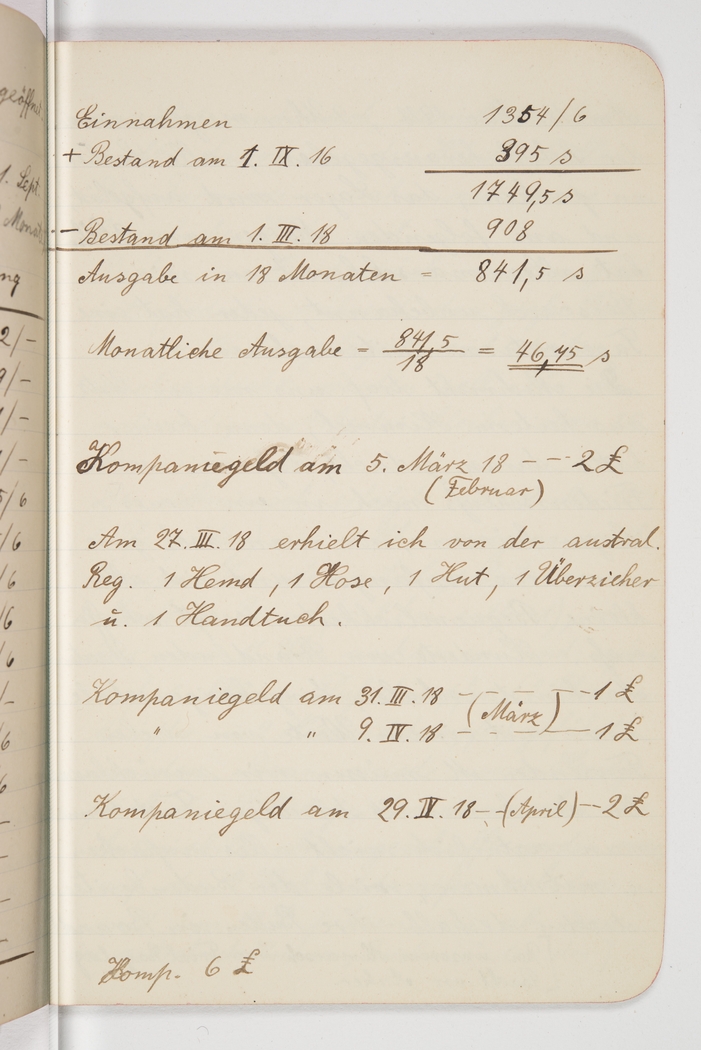 geöffn
1. Sept.
Monat
ng
2/-
9/-
1/-
1/-
5/6
/6
/6
/6
/6
/-
/6
6
-
-
-
-
Einnahmen 1354/6
+ Bestand am 1. IX. 16 395 s
1749,5 s
- Bestand am 1. III. 18 908
Ausgabe in 18 Monaten = 841,5 s
Monatliche Ausgabe = 841,5 / 18 = 46,75 s
Kompaniegeld am 5. März 18 - - - 2 £
(Februar)
Am 27. III. 18 erhielt ich von der austral.
Reg. 1 Hemd, 1 Hose, 1 Hut, 1 Überzieher
u. 1 Handtuch.
Kompaniegeld am 31. III. 18 - - - - 1 £
(März)
" " 9. IV. 18 - - - - 1 £
Kompaniegeld am 29. IV. 18 - - (April) - 2 £
Komp. 6 £